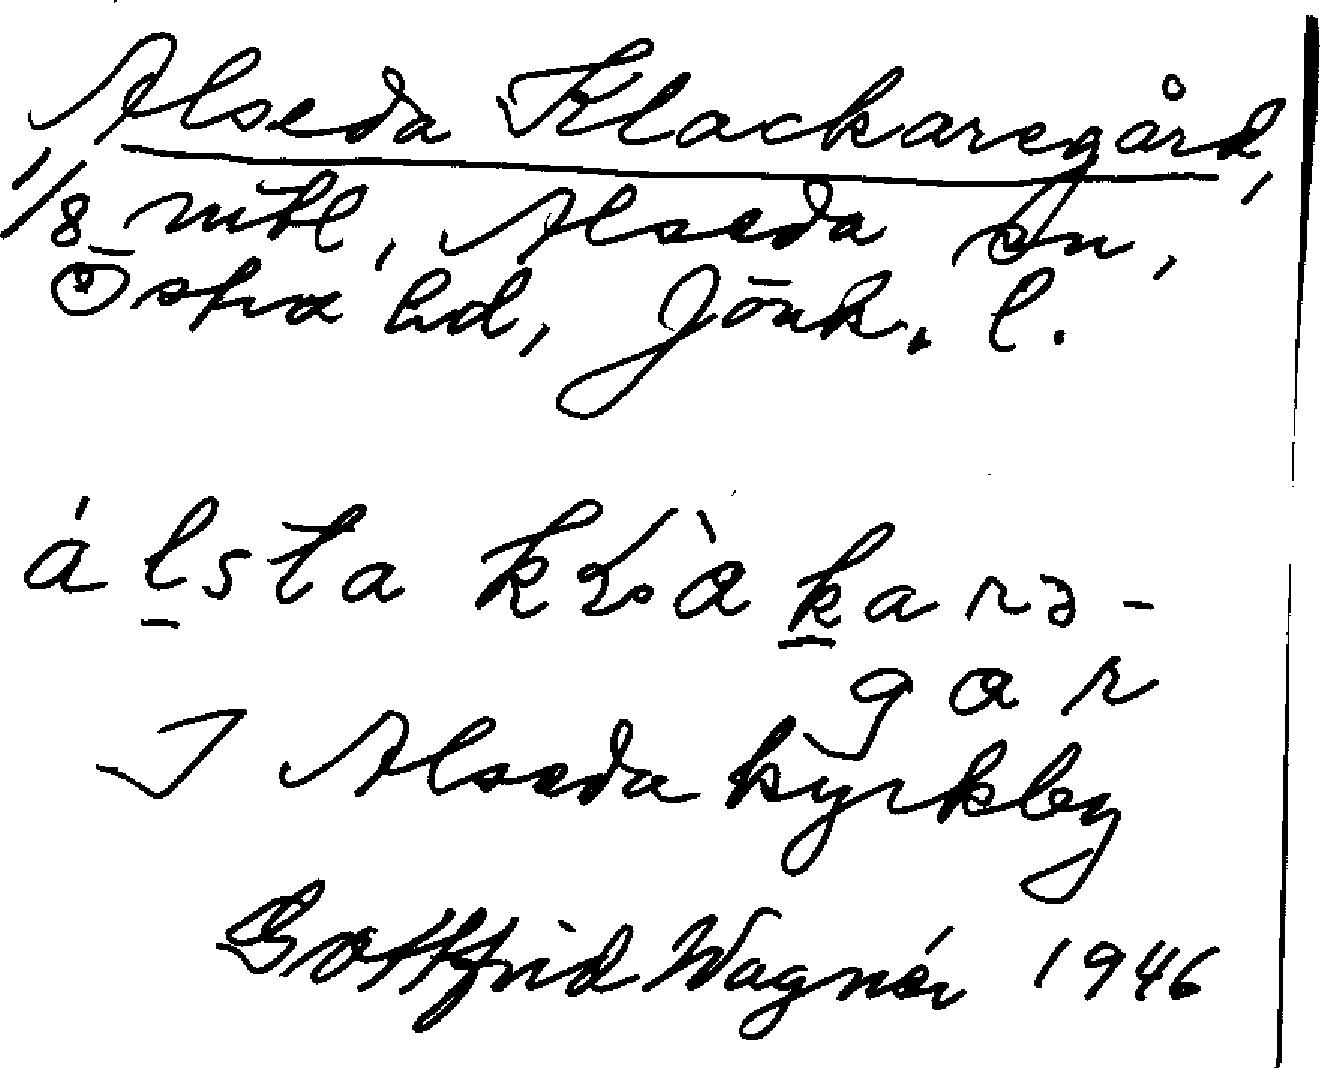 Alseda Klockaregård,
1/8 mtl, Alseda sn,
Östra hd, Jönk. l.
álsta
gar
I Alseda kyrkby
Gottfrid Wagnér 1946